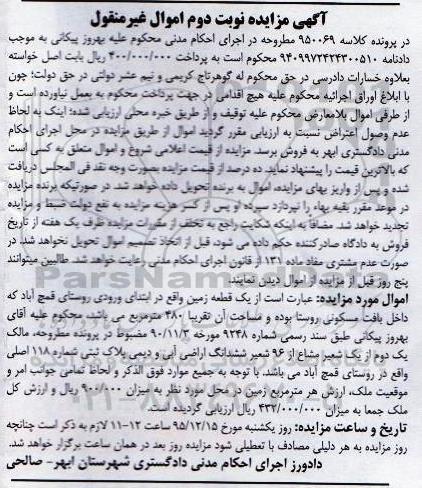 آگهی مزایده نوبت دوم اموال غیرمنقول
در پرونده کلاسه ۹۵۰۰۶۹ مطروحه در اجرای احکام مدنی محکوم علیه بهروز پیکانی به موجب
دادنامه ۹۴۰۹۹۷۲۴۲۴۳۰۰۵۱۰ محکوم است به پرداخت ۴۰۰/۰۰۰/۰۰۰ ریال بابت اصل خواسته
بعلاوه خسارات دادرسی در حق محکوم له گوهرتاج کریمی و نیم عشر دولتی در حق دولت؛ چون
با ابلاغ اوراق اجرائیه محکوم علیه هیچ اقدامی در جهت پرداخت محکوم به بعمل نیاورده است و
از طرفی اموال بلامعارض محکوم علیه توقیف و از طریق خبره محلی ارزیابی شده؛ اینک به لحاظ
عدم وصول اعتراض نسبت به ارزیابی مقرر گردید اموال از طریق مزایده در محل اجرای احکام
مدنی دادگستری ابهر به فروش برسد. مزایده از قیمت اعلامی شروع و اموال متعلق به کسی است
که بالاترین قیمت را پیشنهاد نماید. ده درصد از قیمت مزایده بصورت وجه نقد فی المجلس دریافت
شده و پس از واریز بهای مزایده، اموال به برنده تحویل داده خواهد شد. در صورتیکه برنده مزایده
در موعد مقرر بقیه بهاء را نپردازد سپرده او پس از کسر هزینه مزایده به نفع دولت ضبط و مزایده
تجدید خواهد شد. مضافاً به اینکه شکایت راجع به تخلف از مقررات مزایده ظرف یک هفته از تاریخ
فروش به دادگاه صادرکننده حکم داده می شود، قبل از اتخاذ تصمیم اموال تحویل نخواهد شد. در
صورت عدم مشتری مفاد ماده ۱۳۱ از قانون اجرای احکام مدنی رعایت خواهد شد. طالبین میتوانند
پنج روز قبل از مزایده از اموال دیدن نمایند.
اموال مورد مزایده: عبارت است از یک قطعه زمین واقع در ابتدای ورودی روستای قمچ آباد که
داخل بافت مسکونی روستا بوده و مساحت آن تقریبا ۴۸۰ مترمربع می باشد، محکوم علیه آقای
بهروز پیکانی طبق سند رسمی شماره ۹۲۴۸ مورخه ۹۰/۱۱/۳ مضبوط در پرونده مطروحه، مالک
یک دوم از یک شعیر مشاع از ۹۶ شعیر ششدانگ اراضی آبی و دیمی پلاک ثبتی شماره ۱۱۸ اصلی
واقع در روستای قمچ آباد می باشد. با توجه به جمیع موارد فوق الذکر و لحاظ تمامی جوانب امر و
موقعیت ملک، ارزش هر مترمربع زمین در محل مورد نظر به میزان ۹۰۰/۰۰۰ ریال و ارزش کل
ملک جمعا به میزان ۴۳۲/۰۰۰/۰۰۰ ریال ارزیابی گردیده است.
تاریخ و ساعت مزایده: روز یکشنبه مورخ ۹۵/۱۲/۱۵ ساعت ۱۲-۱۱ لازم به ذکر است چنانچه
روز مزایده به هر دلیلی مصادف با تعطیلی شود مزایده روز بعد در همان ساعت برگزار خواهد شد.
دادورز اجرای احکام مدنی دادگستری شهرستان ابهر- صالحی